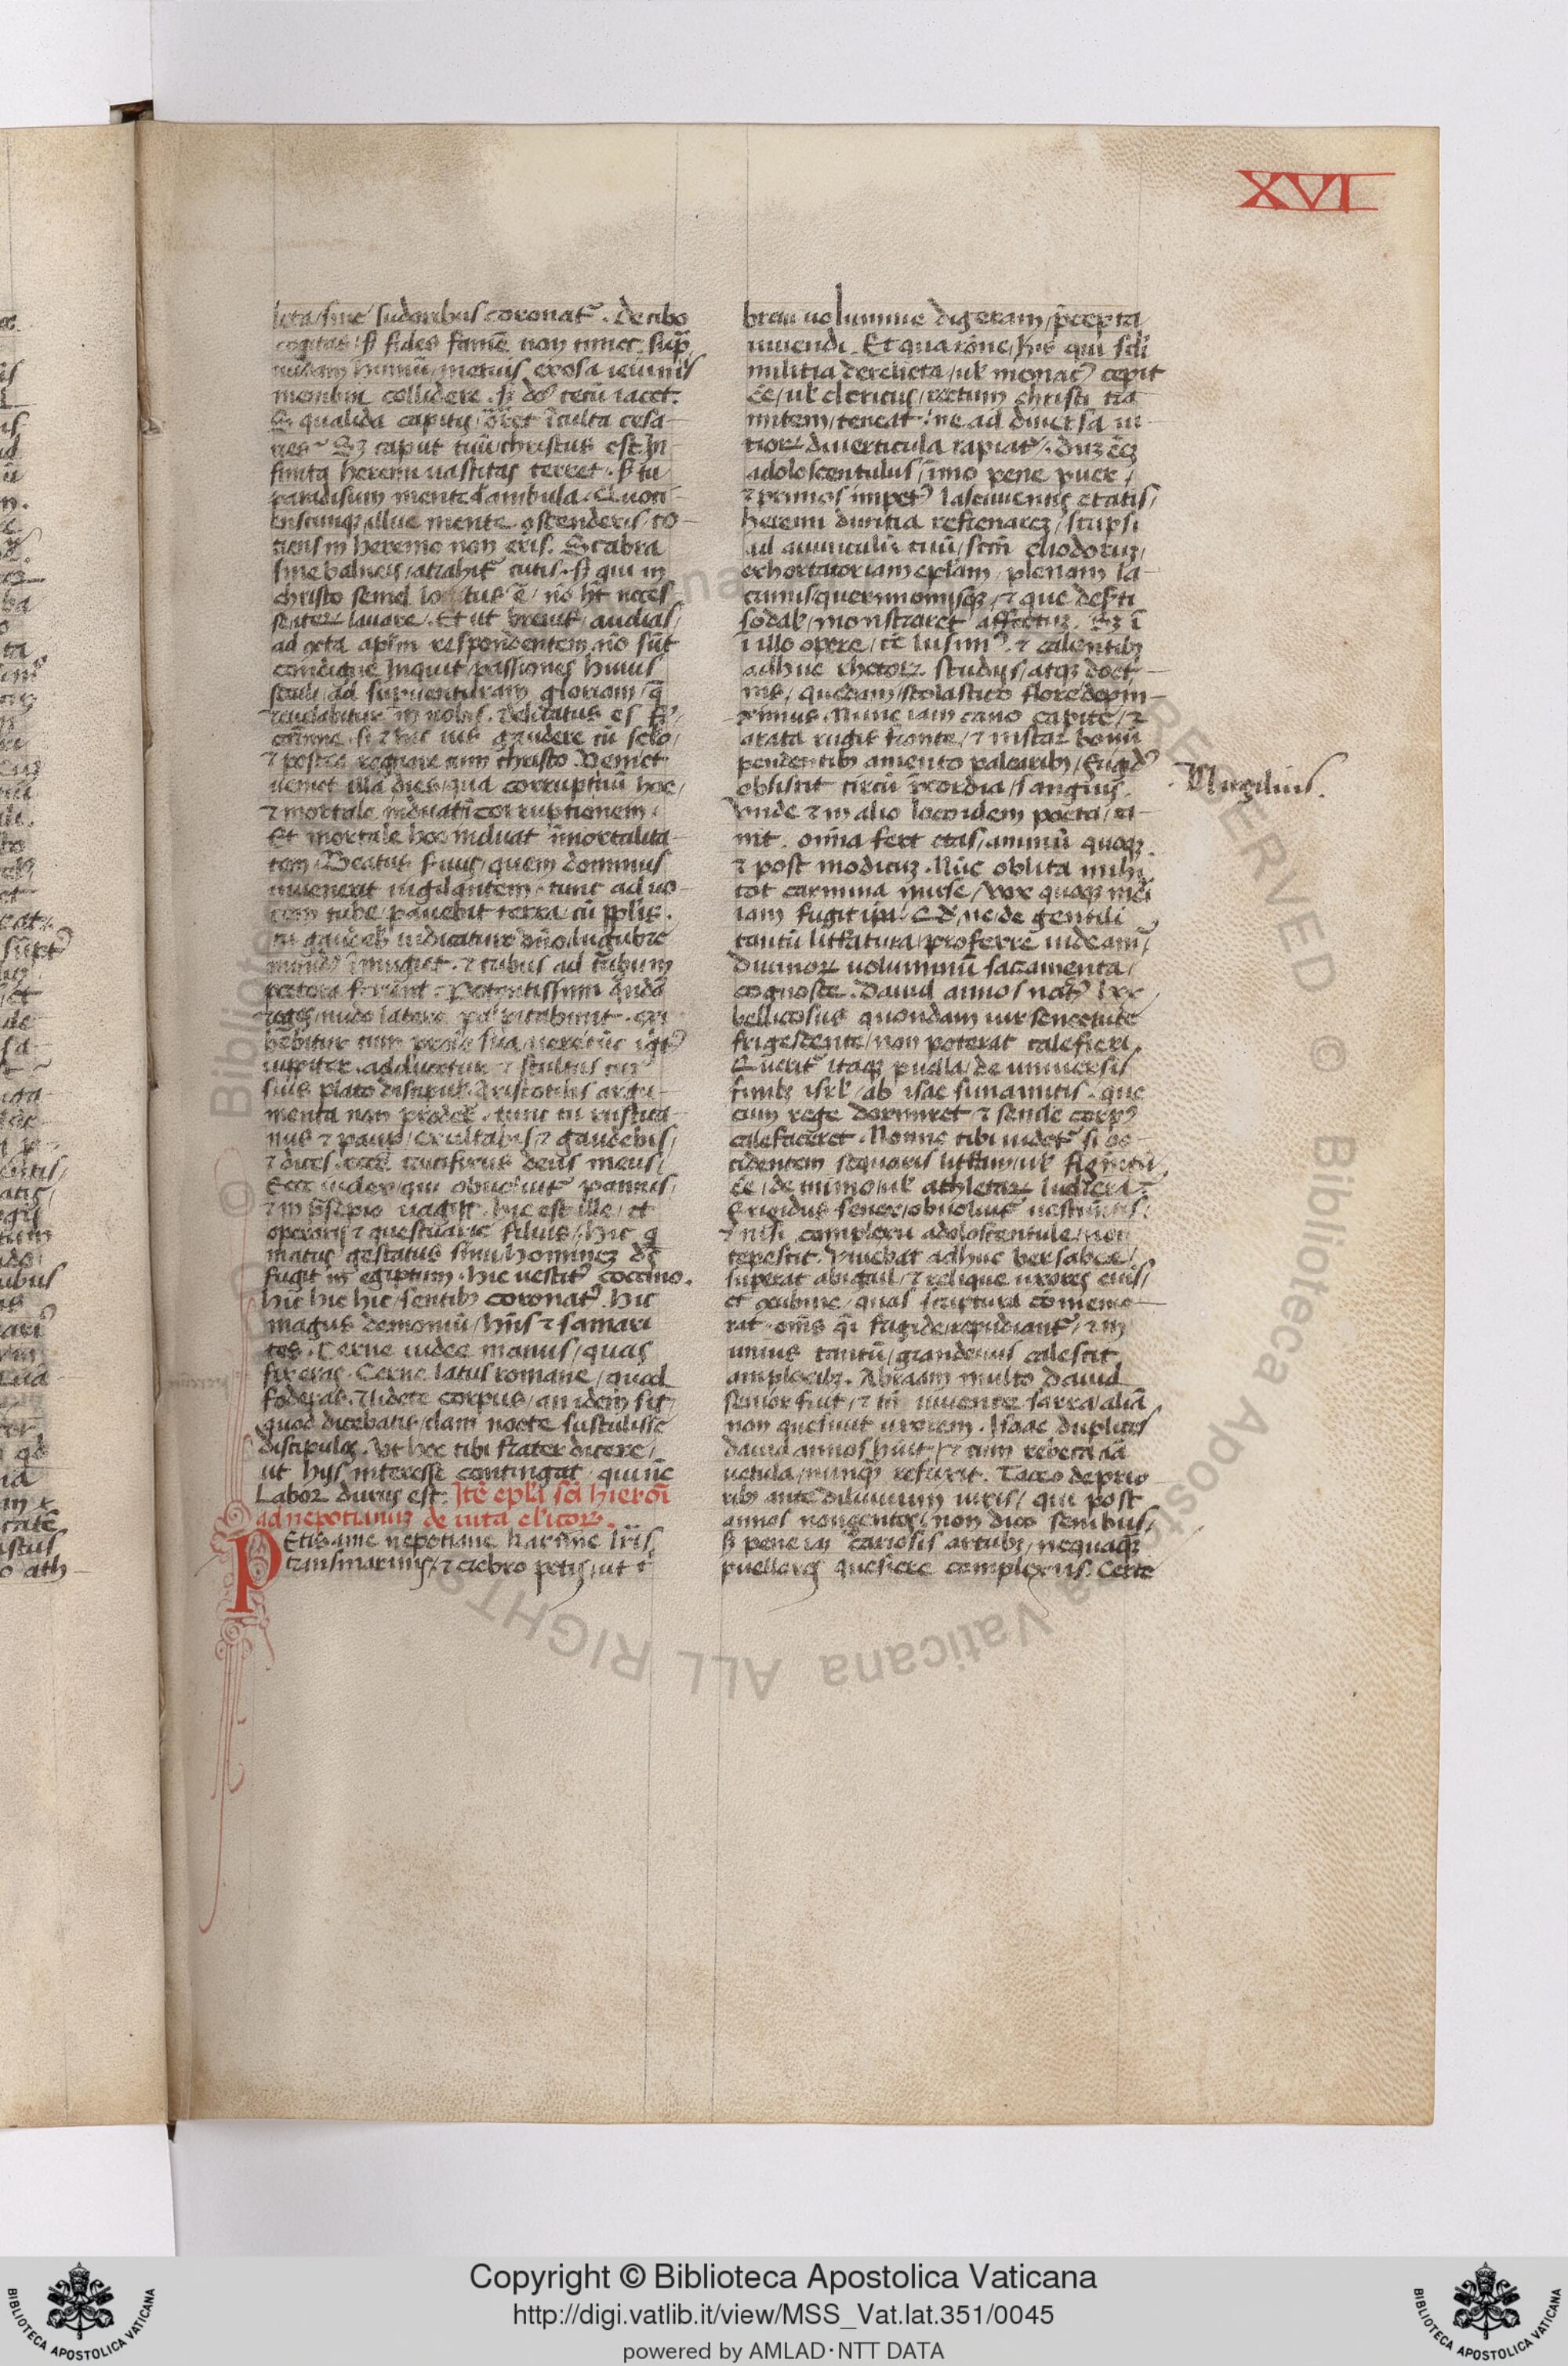 XVI
leta / sine / sudoribus coronat᷒ . De cibo
cogitas / sꝫ fides famē non timet . sup̄
nudam humū / metuis exosa ieiuniis
membra collidere . sꝫ dō tecū iacet .
Sqⁱualida capitis / hōret īculta cesa-
ries ~ Sꝫ caput tuū / christus est In
finita heremi uastitas terret . sꝫ tu
paradisum mente d'ambula . Quoti-
enscunqꝫ illuc mente ascenderis / to-
tiens in heremo non eris . Scabra
sine balneis / atrahit᷒ cutis . sꝫ qui in
christo semel lotus ē / nō hꝫt neces
se iterꝫ lauare . Et ut breuit᷒ audias /
ad cᷓcta apl̄m respondentem nō sūt
condigne Inquit passiones huius
seculi / ad superuenturam gloriam / q̄
reuelabitur in nobis . Delicatus es fr̄
carissime . si ⁊ hic uis gaudere cū sclo /
⁊ postea regnare cum christo . Veniet
ueniet illa dies / qua corruptiuū hoc /
⁊ mortale induat īcorruptionem .
Et mortale hoc induat īmortalita-
tem . Beatus seruus / quem dominus
inuenerit uigilantem . tunc ad uo-
cem tube / pauebit terra cū pplis .
tu gaudeb᷒ iudicaturo dn̄o lugubre
mund᷒ īmugiet . ⁊ tribus ad tribum
pectora ferient . Potentissimi quōdā
reges / nudo latere palpitabunt . exi
hebitur cum prole sua uere tūc ignit᷒
iupiter . adducetur ⁊ stultus cum
suis plato discipul᷒ . Aristotilis argu-
menta non proder᷒ . tunc tu rustica-
nus ⁊ paup᷒ / exultabis / ⁊ gaudebis /
⁊ dices . ecce crucifixus deus meus /
Ecce iudex / qui obuolut᷒ pannis /
⁊ in p̄sepio uagiit . hic est ille / et
operarii ⁊ questuarie filius / hic q
matris gestatus sinu / homineꝫ dē
fugit in egiptum . hic uestit᷒ coccino .
hic hic hic / sentibꝫ coronat᷒ . hic
magus demoniū / hn̄s ⁊ samari
tes . Cerne iudee manus / quas
fixeras . Cerne latus romane / quod
foderas . Uidete corpus / an idem sit /
quod dicebatis / clam nocte sustulisse
discipulos . Ut hec tibi frater dicere /
ut hys interesse contingat / qui nc̄
Labor durus est . Itē epl̄a sci hieroī
ad nepotianuꝫ de uita cl̓icorꝫ .
PEtis a me nepotiane karissime lr̄is
transmarinis / ⁊ crebro petis / ut t
breui uolumine digeram / p̄cepta
uiuendi . Et qua rōne / his qui scl̓i
militia derelicta / ul᷒ monac᷒ cepit
ēe / ul᷒ clericus / rectum christi tra
mitem / teneat . ne ad diuersa ui-
tiorꝫ diuerticula rapiat᷒ . Dum eēꝫ
adoloscentulus / imo pene puer /
⁊ primos impet᷒ lasciuientis etatis /
heremi duritia refrenareꝫ / scripsi
ad auunculū tuū / scm̄ eliodoruꝫ /
exhortatoriam epl̄am / plenam la-
crimis querimonijsqꝫ / ⁊ que deserti
sodal᷒ / monstraret affectuꝫ . Sꝫ ī
illo opere / ꝓ etate lusim᷒ . ⁊ calentibꝫ
adhuc rhetorꝫ studiis / atqꝫ doct-
nis / quedam / scolastico flore depin-
ximus . Nunc iam cano capite / ⁊
arata rugis fronte / ⁊ instar bouū
pendentibꝫ a mento palearibꝫ / frigid᷒
obsistit circū p̄cordia / sangius .
Unde ⁊ in alio loco idem poeta / ca-
nit . omīa fert etas / animū quoqꝫ .
⁊ post modicuꝫ . Nūc oblita mihi
tot carmina / uox quoqꝫ meri
iam fugit ipa . Sꝫ ne de gentili
tantū littratura / proferre uideamr̄ /
Diuinorꝫ uoluminū sacramenta /
cognosce . Dauid annos nat᷒ lxx
bellicosus quondam uir senectute
frigescente / non poterat calefieri .
Querit᷒ itaqꝫ puella / de uniuersis
finibꝫ isrl̓ / abisac sunamitis . que
cum rege dormiret ⁊ senile corp᷒
calefaceret . Nonne tibi uidet᷒ si oc-
cidentem sequaris littram / ul᷒ figmtū
ēe / de mimo / ul᷒ athletarꝫ ludicra ?
Frigidus senex / obuoluit᷒ uestimtis /
⁊ nisi complexu adoloscentule / non
tepescit . Uiuebat adhuc bersabee /
superat abigail / ⁊ relique uxores eius /
et ocubine / quas scriptura cōmemo-
rat . om̄s q̄i frigide / repudiant᷒ / ⁊ in
unius tantū / grandeuus calescit
amplexibꝫ . Abraam multo dauid
senior fuit / ⁊ tn̄ uiuente sarra / aliā
non quesiuit uxorem . Isaac duplices
dauid annos huit / ⁊ cum rebeca iā
uetula / nunqꝫ refrixit . Taceo de prio
ribꝫ ante diluuium uiris / qui post
annos nongentos / non dico senibus /
sꝫ pene iaꝫ cariosis artubꝫ / nequaqꝫ
puellares quesiere complexus . Certe
Virgilius .
Copyright © Biblioteca Apostolica Vaticana
http://digi.vatlib.it/view/MSS_Vat.lat.351/0045
powered by AMLAD·NTT DATA